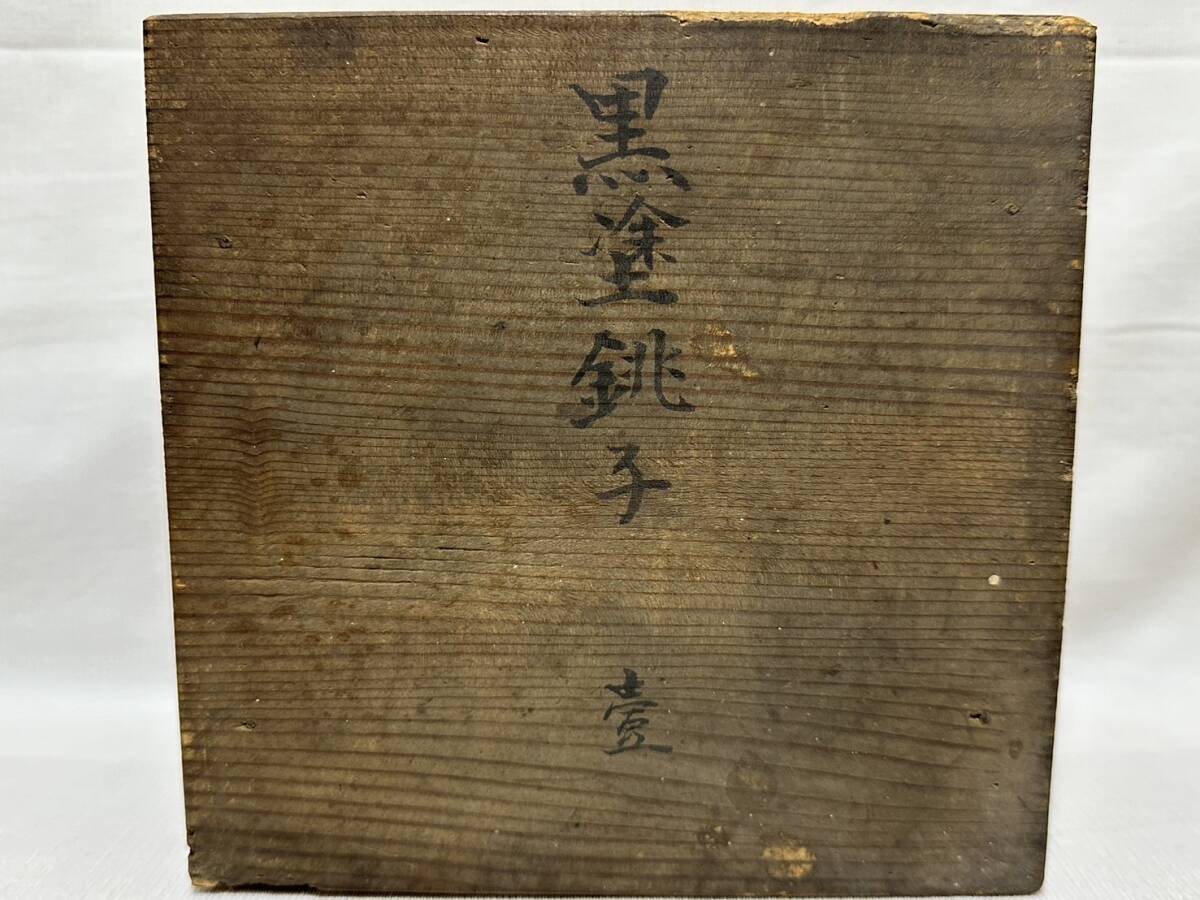 黒塗銚子 壹